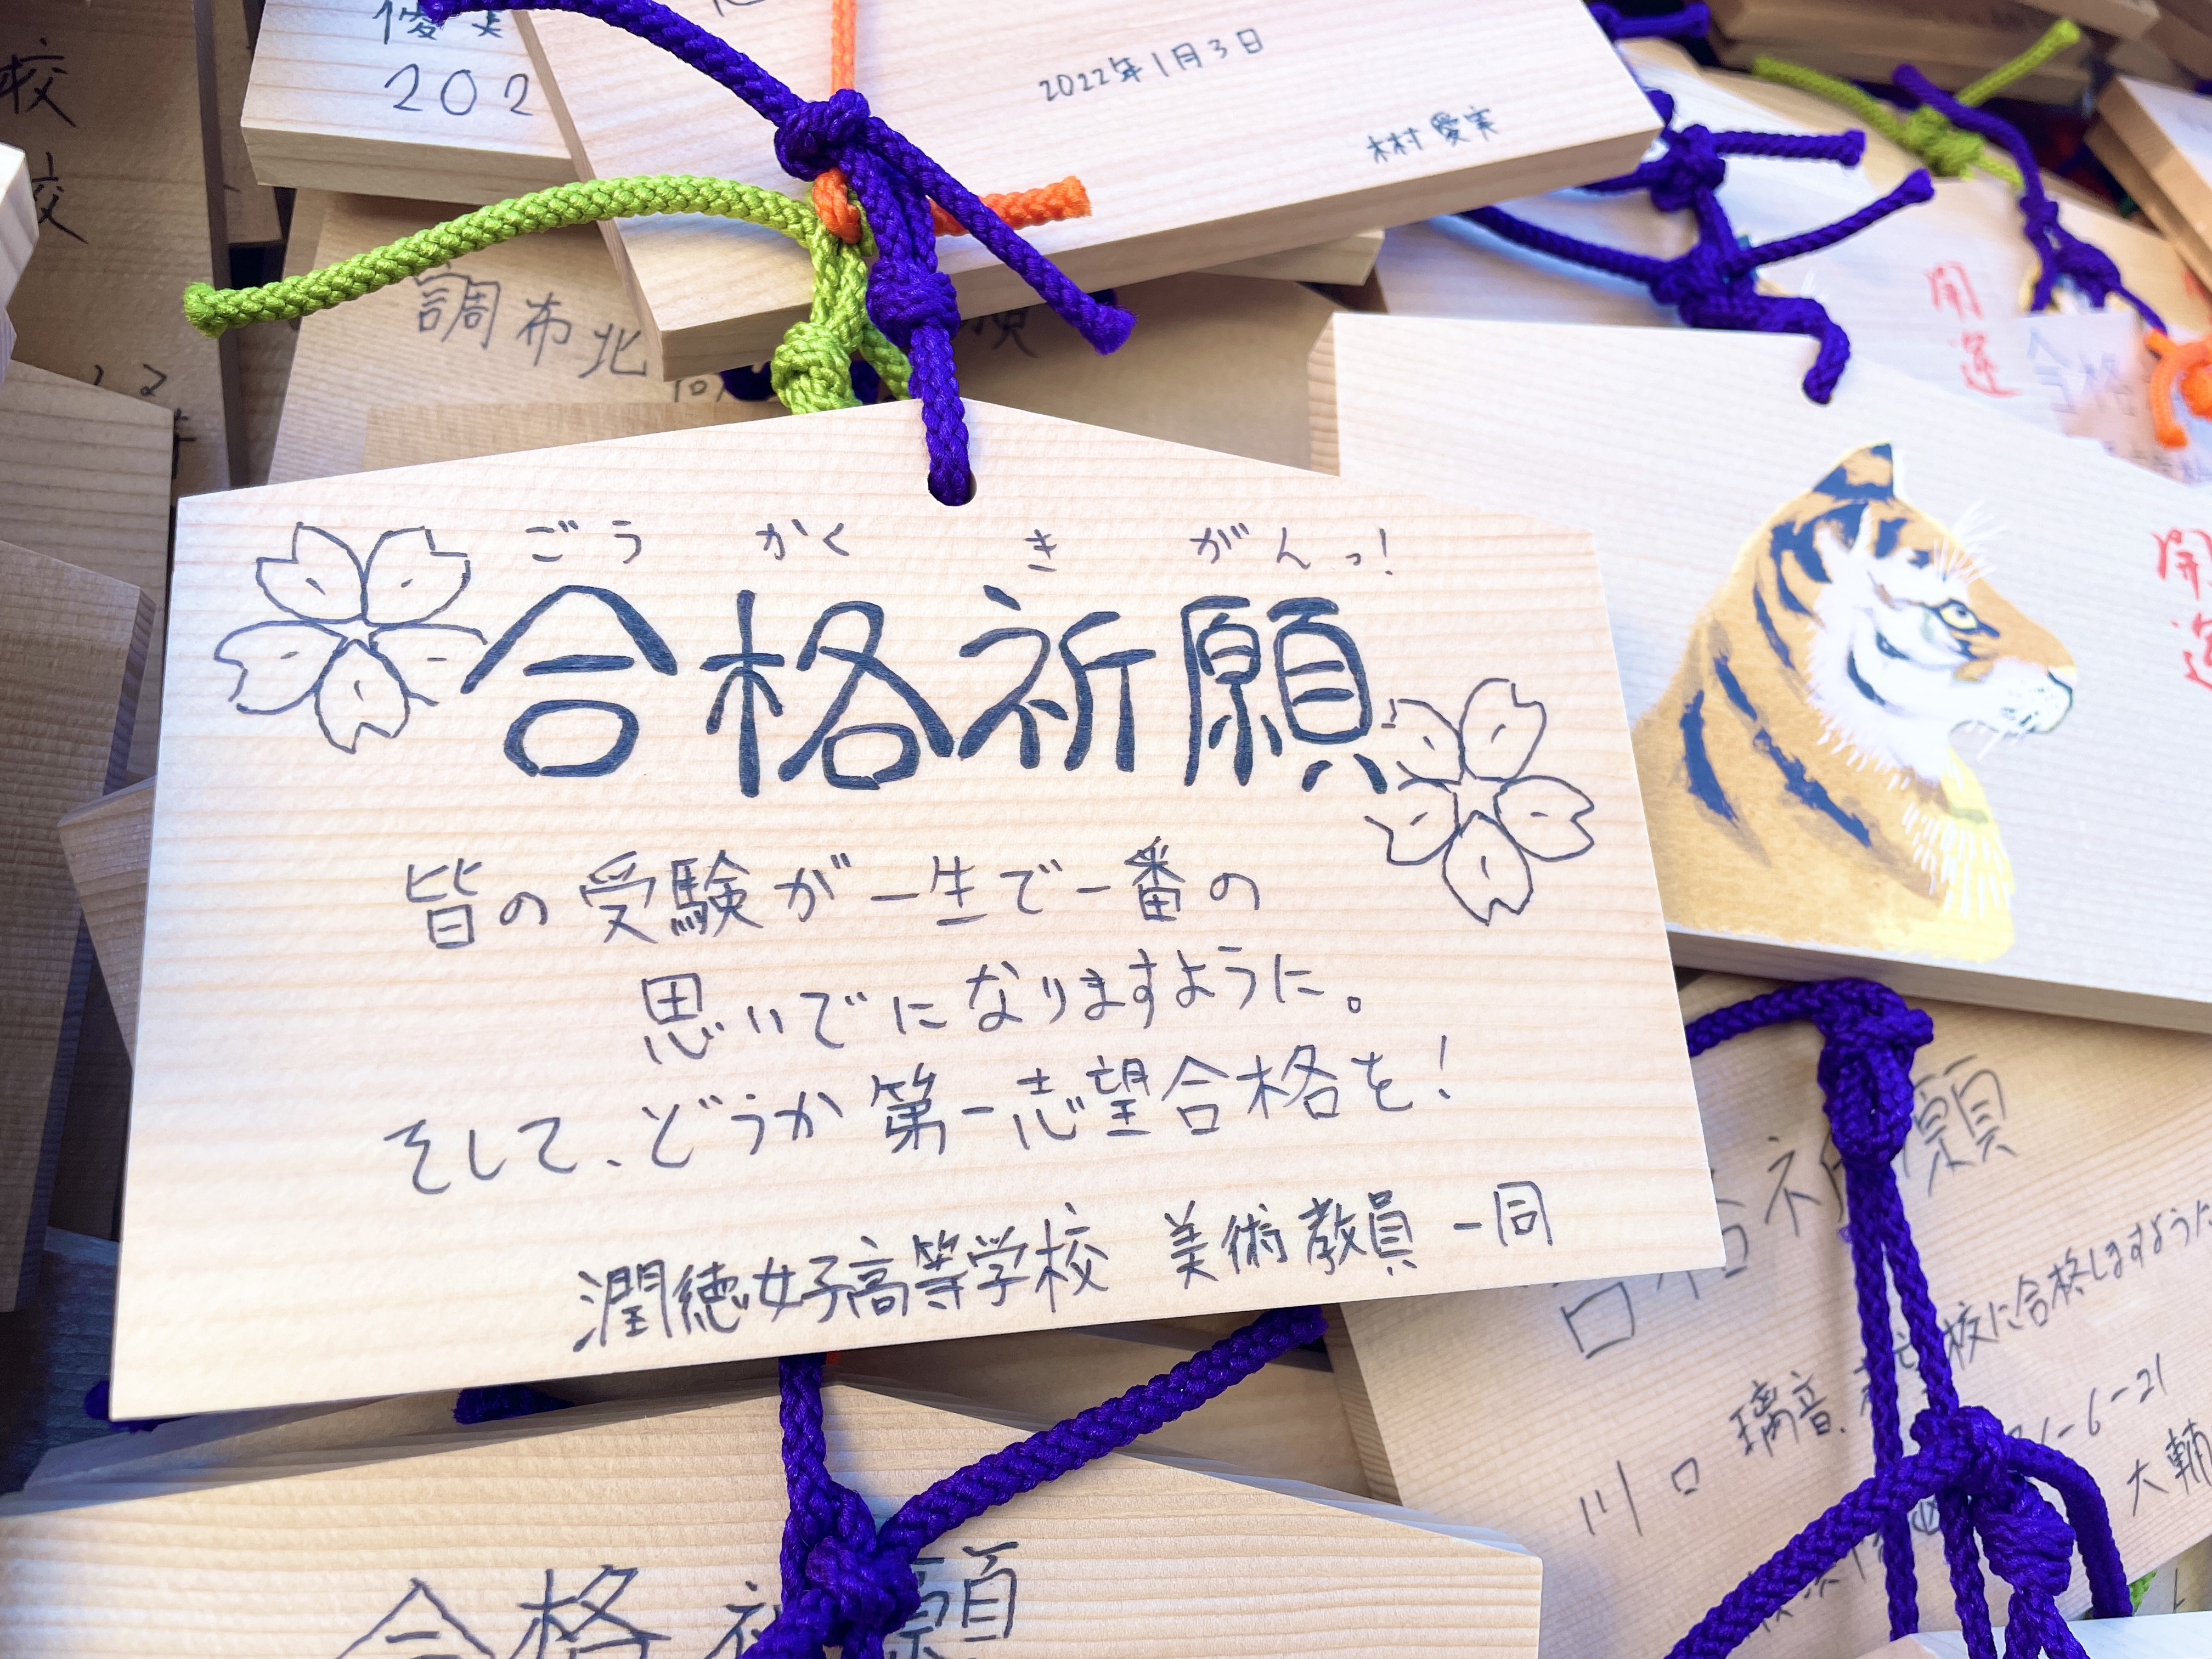 俊実
202
2022年1月3日
木村愛実
校
校
調布北高
開運
合格
開運
ごうかくきがんっ!
合格祈願
皆の受験が一生で一番の
思いでになりますように。
そして、どうか第一志望合格を!
潤徳女子高等学校 美術教員一同
願
校に合格しますように
川口 璃音
1-6-21
大輔
合格祈願